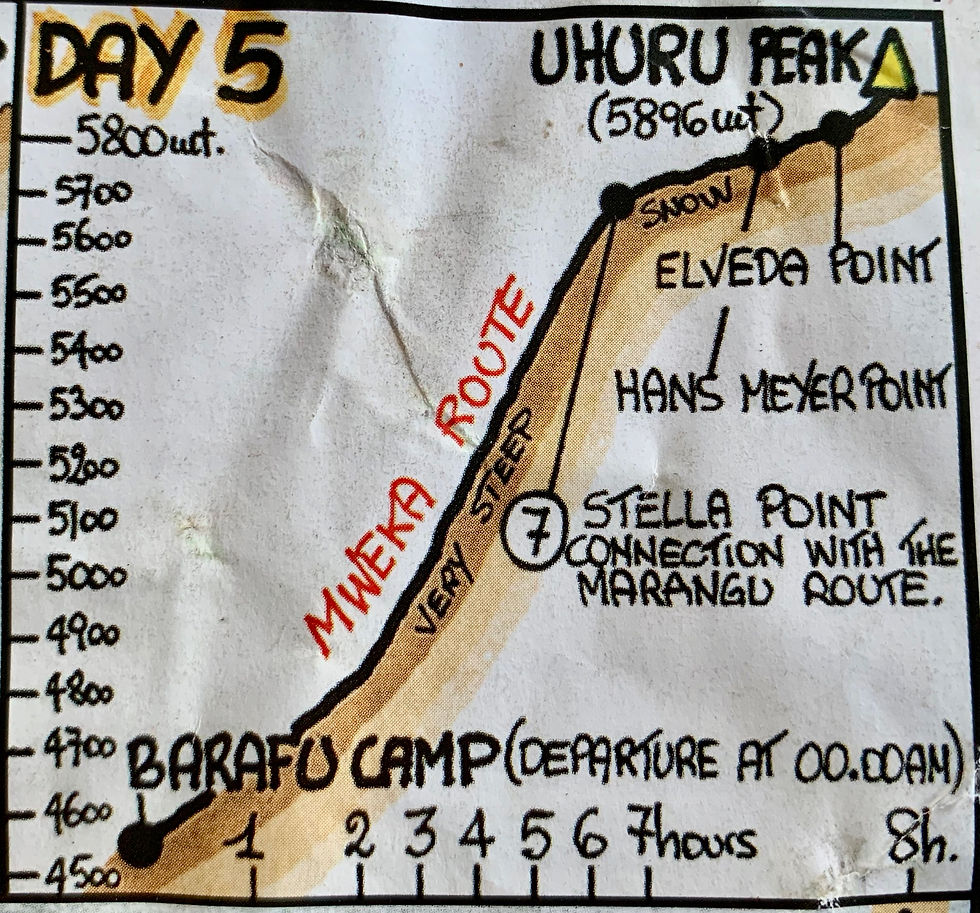 DAY 5
UHURU PEAK
(5896mt)
5800mt.
5700
5600
5500
5400
5300
5200
5100
5000
4900
4800
4700
4600
4500
SNOW
ELVEDA POINT
HANS MEYER POINT
MWEKA ROUTE
VERY STEEP
7
STELLA POINT
CONNECTION WITH THE
MARANGU ROUTE.
BARAFU CAMP (DEPARTURE AT 00.00AM)
1 2 3 4 5 6 7hours 8h.